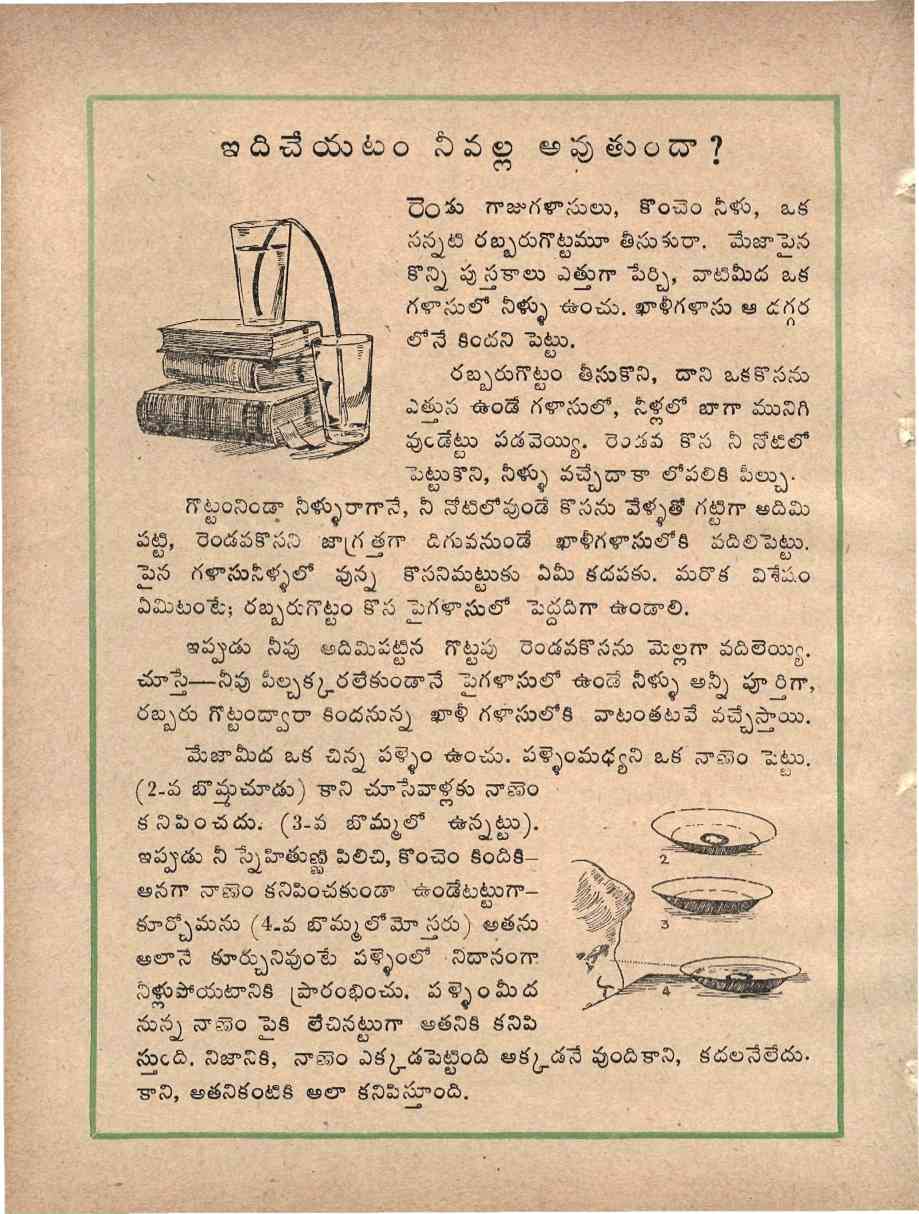 ఇది చేయటం నీవల్ల అవుతుందా ?
రెండు గాజుగళాసులు, కొంచెం నీళు, ఒక
సన్నటి రబ్బరుగొట్టమూ తీసుకురా. మేజాపైన
కొన్ని పుస్తకాలు ఎత్తుగా పేర్చి, వాటిమీద ఒక
గళాసులో నీళ్ళు ఉంచు. ఖాళీగళాసు ఆ దగ్గర
లోనే కిందని పెట్టు.
రబ్బరుగొట్టం తీసుకొని, దాని ఒకకొసను
ఎత్తున ఉండే గళాసులో, నీళ్లలో బాగా మునిగి
వుండేట్టు పడవెయ్యి. రెండవ కొస నీ నోటిలో
పెట్టుకొని, నీళ్ళు వచ్చేదాకా లోపలికి పీల్చు.
గొట్టంనిండా నీళ్ళురాగానే, నీ నోటిలోవుండే కొసను వేళ్ళతో గట్టిగా అదిమి
పట్టి, రెండవకొసని జాగ్రత్తగా దిగువనుండే ఖాళీగళాసులోకి వదిలిపెట్టు.
పైన గళాసునీళ్ళలో వున్న కొసనిమట్టుకు ఏమీ కదపకు. మరొక విశేషం
ఏమిటంటే; రబ్బరుగొట్టం కొస పైగళాసులో పెద్దదిగా ఉండాలి.
ఇప్పుడు నీవు అదిమిపట్టిన గొట్టపు రెండవకొసను మెల్లగా వదిలెయ్యి.
చూస్తే—నీవు పీల్చక్కరలేకుండానే పైగళాసులో ఉండే నీళ్ళు అన్నీ పూర్తిగా,
రబ్బరు గొట్టంద్వారా కిందనున్న ఖాళీ గళాసులోకి వాటంతటవే వచ్చేస్తాయి.
మేజామీద ఒక చిన్న పళ్ళెం ఉంచు. పళ్ళెంమధ్యని ఒక నాణెం పెట్టు.
(2-వ బొమ్మచూడు) కాని చూసేవాళ్లకు నాణెం
కనిపించదు. (3-వ బొమ్మలో ఉన్నట్టు).
ఇప్పుడు నీ స్నేహితుణ్ణి పిలిచి, కొంచెం కిందికి—
అనగా నాణెం కనిపించకుండా ఉండేటట్టుగా—
కూర్చోమను (4-వ బొమ్మలోమోస్తరు) అతను
అలానే కూర్చునివుంటే పళ్ళెంలో నిదానంగా
నీళ్లుపోయటానికి ప్రారంభించు. పళ్ళెంమీద
నున్న నాణెం పైకి లేచినట్టుగా అతనికి కనిపి
స్తుంది. నిజానికి, నాణెం ఎక్కడపెట్టింది అక్కడనే వుందికాని, కదలనేలేదు.
కాని, అతనికంటికి అలా కనిపిస్తూంది.
2
3
4